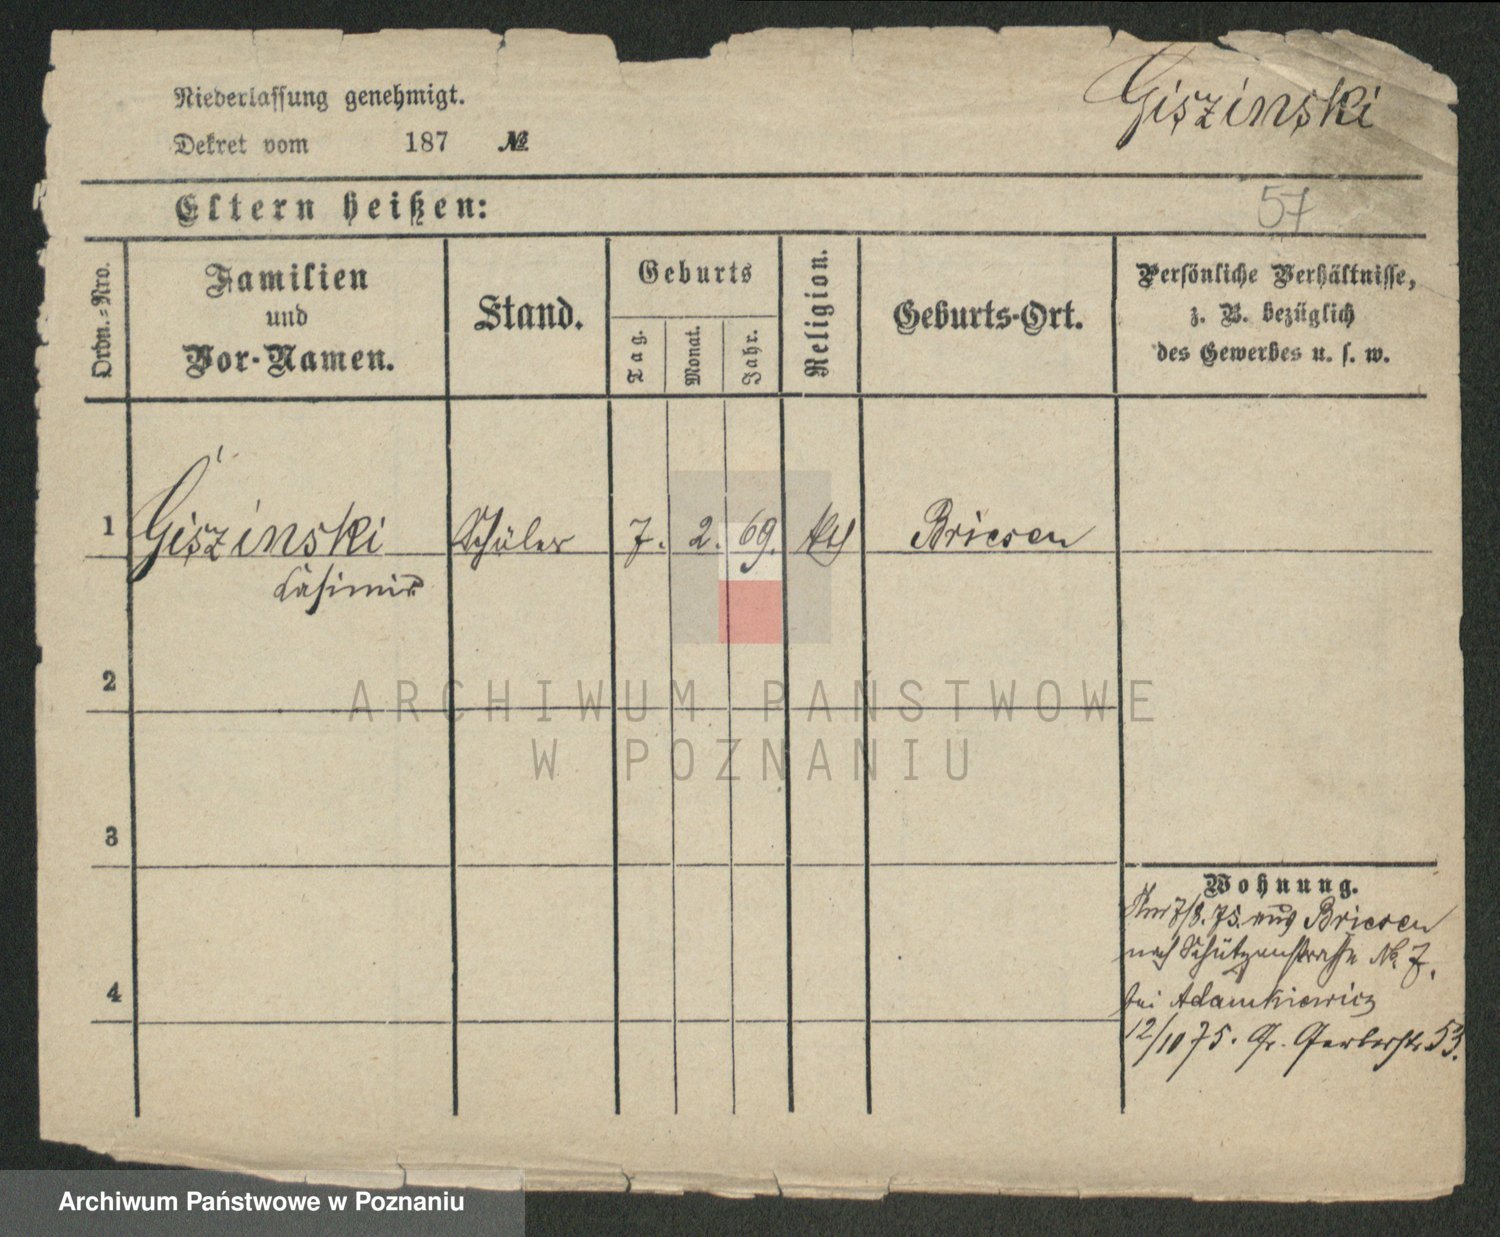 Niederlassung genehmigt.
Giszinski
Dekret vom 187 №
Eltern heißen:
57
Ordn.-Nro.
Familien
und
Vor-Namen.
Stand.
Geburts
Tag.
Monat.
Jahr.
Religion.
Geburts-Ort.
Persönliche Verhältnisse,
z. B. bezüglich
des Gewerbes u. s. w.
1 Giszinski Schüler 7. 2. 69. kth Briesen
Casimir
2
ARCHIWUM PAŃSTWOWE
W POZNANIU
3
Wohnung.
7/8. 75. aus Briesen
nach Schützenstrasse No. 7.
bei Adamkiewicz
4
12/10 75. Gr. Gerberstr. 53.
Archiwum Państwowe w Poznaniu